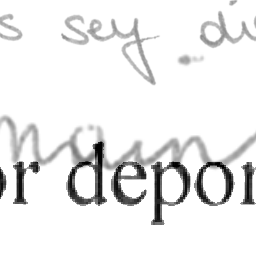 s sey di
main
or depon